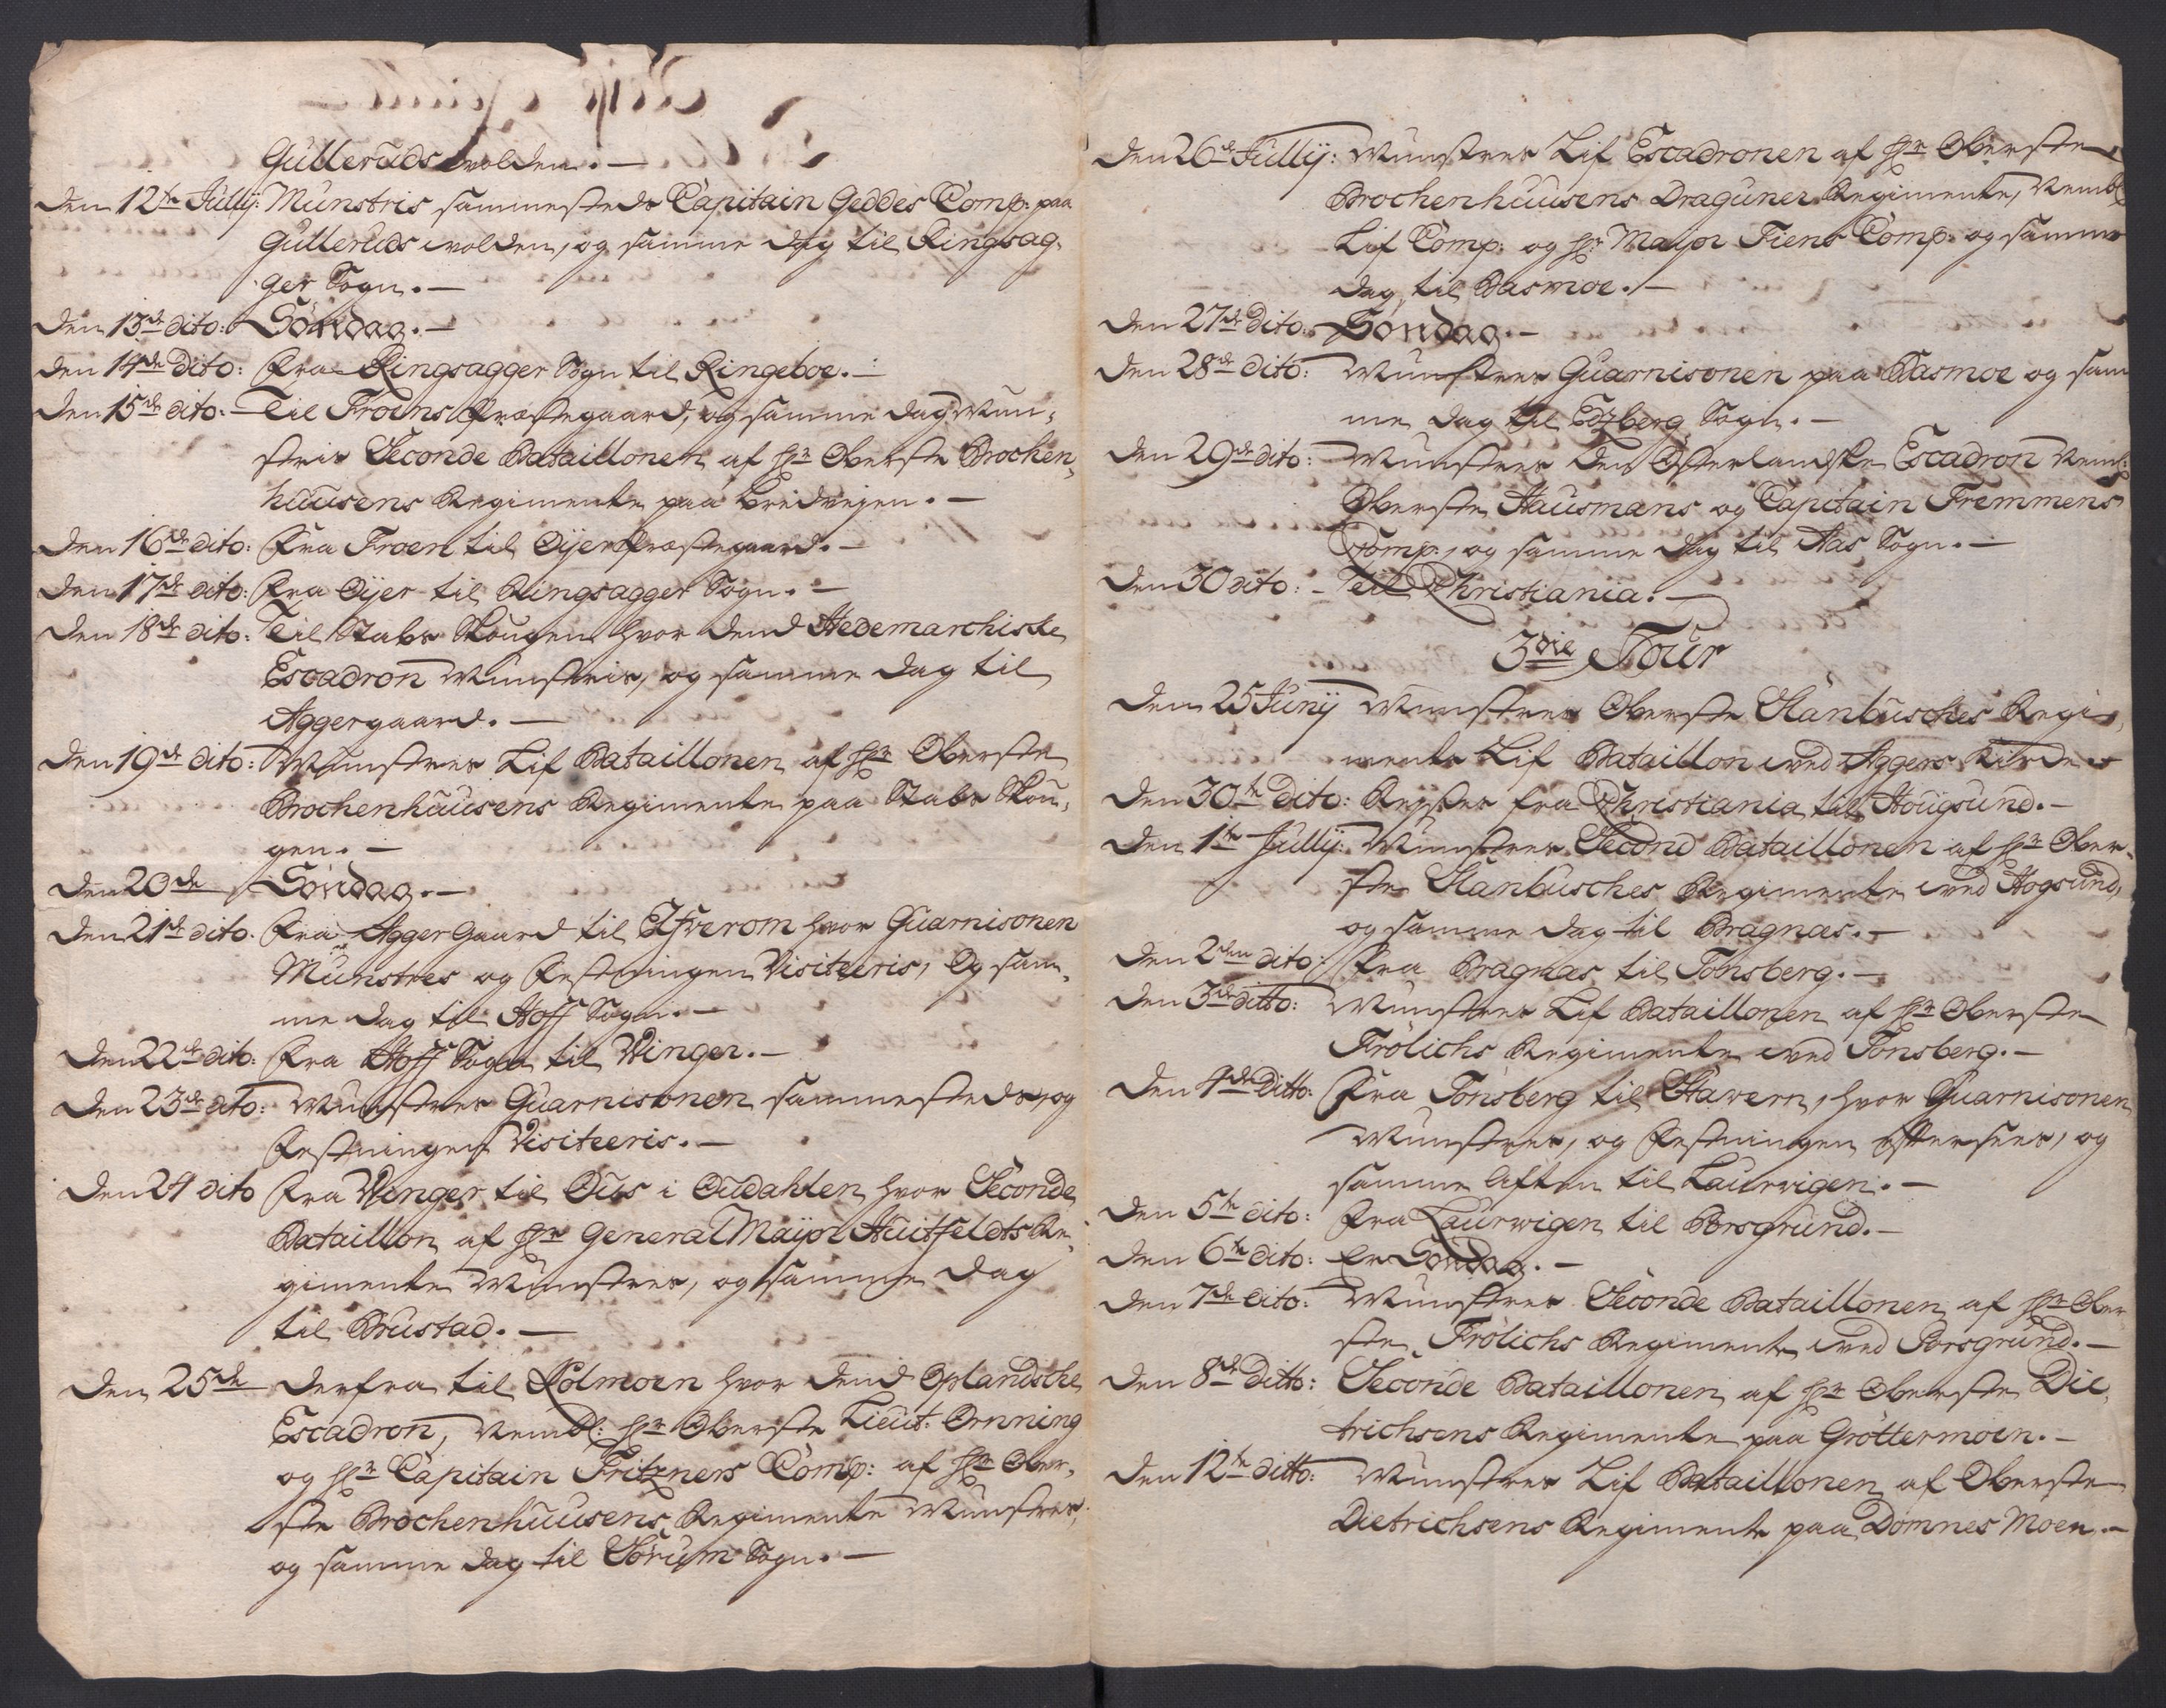 Gulleruds volden. —
Den 12te Jullÿ: Munstris sammesteds Capitain Geddes Comp: paa
Gulleruds volden, og samme dag til Ringsag-
ger Sogn. —
Den 13de dito: Söndag. —
Den 14de dito: Fra Ringsagger Sogn til Ringeboe. —
Den 15de dito: Til Froens Præstegaard, og samme dag Mun-
stris Seconde Bataillonen af Hr Oberste Brochen-
huusens Regimente paa Breidvejen. —
Den 16de dito: Fra Froen til Öijer Præstegaard. —
Den 17de dito: Fra Öijer til Ringsagger Sogn. —
Den 18de dito: Til Stabs Skougen hvor dend Hedemarchiske
Escadron Munstris, og samme dag til
Aggergaard. —
Den 19de dito: Munstres Lif Bataillonen af Hr Oberste
Brochenhuusens Regimente paa Stabs Skou-
gen. —
Den 20de Söndag. —
Den 21de dito. Fra Agger Gaard til Elfverom hvor Guarnisonen
Munstres og Festningen Visiteeris, Og sam-
me dag til Hoff Sogn. —
Den 22de dito: Fra Hoff Sogn til Winger. —
Den 23de dito: Munstres Guarnisonen sammesteds, og
Festningen Visiteeris. —
Den 24 dito Fra Winger til Ous i Oudahlen hvor Seconde
Bataillon af Hr General Maijor Huitfeldts Re-
gimente Munstres, og samme dag
til Brustad. —
Den 25de derfra til Kolmoen hvor dend Oplandske
Escadron, Nembl: Hr Oberste Lieut: Ornning
og Hr Capitain Fritzners Comp: af Hr Ober-
ste Brochenhuusens Regimente Munstres,
og samme dag til Sörum Sogn. —
Den 26de Jullÿ: Munstres Lif Escadronen af Hr Oberste
Brochenhuusens Draguner Regimente, Nembl
Lif Comp: og Hr Major Fiens Comp: og samme
dag til Basmoe. —
Den 27de dito: Söndag. —
Den 28de dito: Munstres Guarnisonen paa Basmoe og sam
me dag til Edzberg Sogn. —
Den 29de dito: Munstres den Österlandske Escadron Neml:
Oberste Hausmans og Capitain Fremmens
Comp:, og samme dag til Aas Sogn. —
Den 30 dito: — Til Christiania. —
3die Tour
Den 25 Junÿ Munstres Oberste Stanbusches Regi-
mente Lif Bataillon ved Aggers Kirche
Den 30te dito: Rejstes fra Christiania til Hougsund. —
Den 1te Jullÿ: Munstres Second Bataillonen af Hr Ober-
ste Stanbusches Regimente ved Hogsund,
og samme dag til Bragnæs. —
Den 2den dito: Fra Bragnæs til Tonsberg. —
Den 3de ditto: Munstres Lif Bataillonen af Hr Oberste
Frölichs Regimente ved Tonsberg. —
Den 4de Ditto: Fra Tonsberg til Stawern, hvor Guarnisonen
Munstres, og Festningen Efterseer, og
samme Aften til Laurwigen. —
Den 5te dito: Fra Laurwigen til Borsgrund. —
Den 6te dito: Er Söndag. —
Den 7de dito: Munstres Seconde Bataillonen af Hr Ober
ste Frölichs Regimente ved Porsgrund. —
Den 8de Ditto: Seconde Bataillonen af Hr Oberste Die-
trichsens Regimente paa Gröttermoen. —
Den 12te ditto: Munstres Lif Bataillonen af Oberste
Dietrichsens Regimente paa Domnes Moen. —